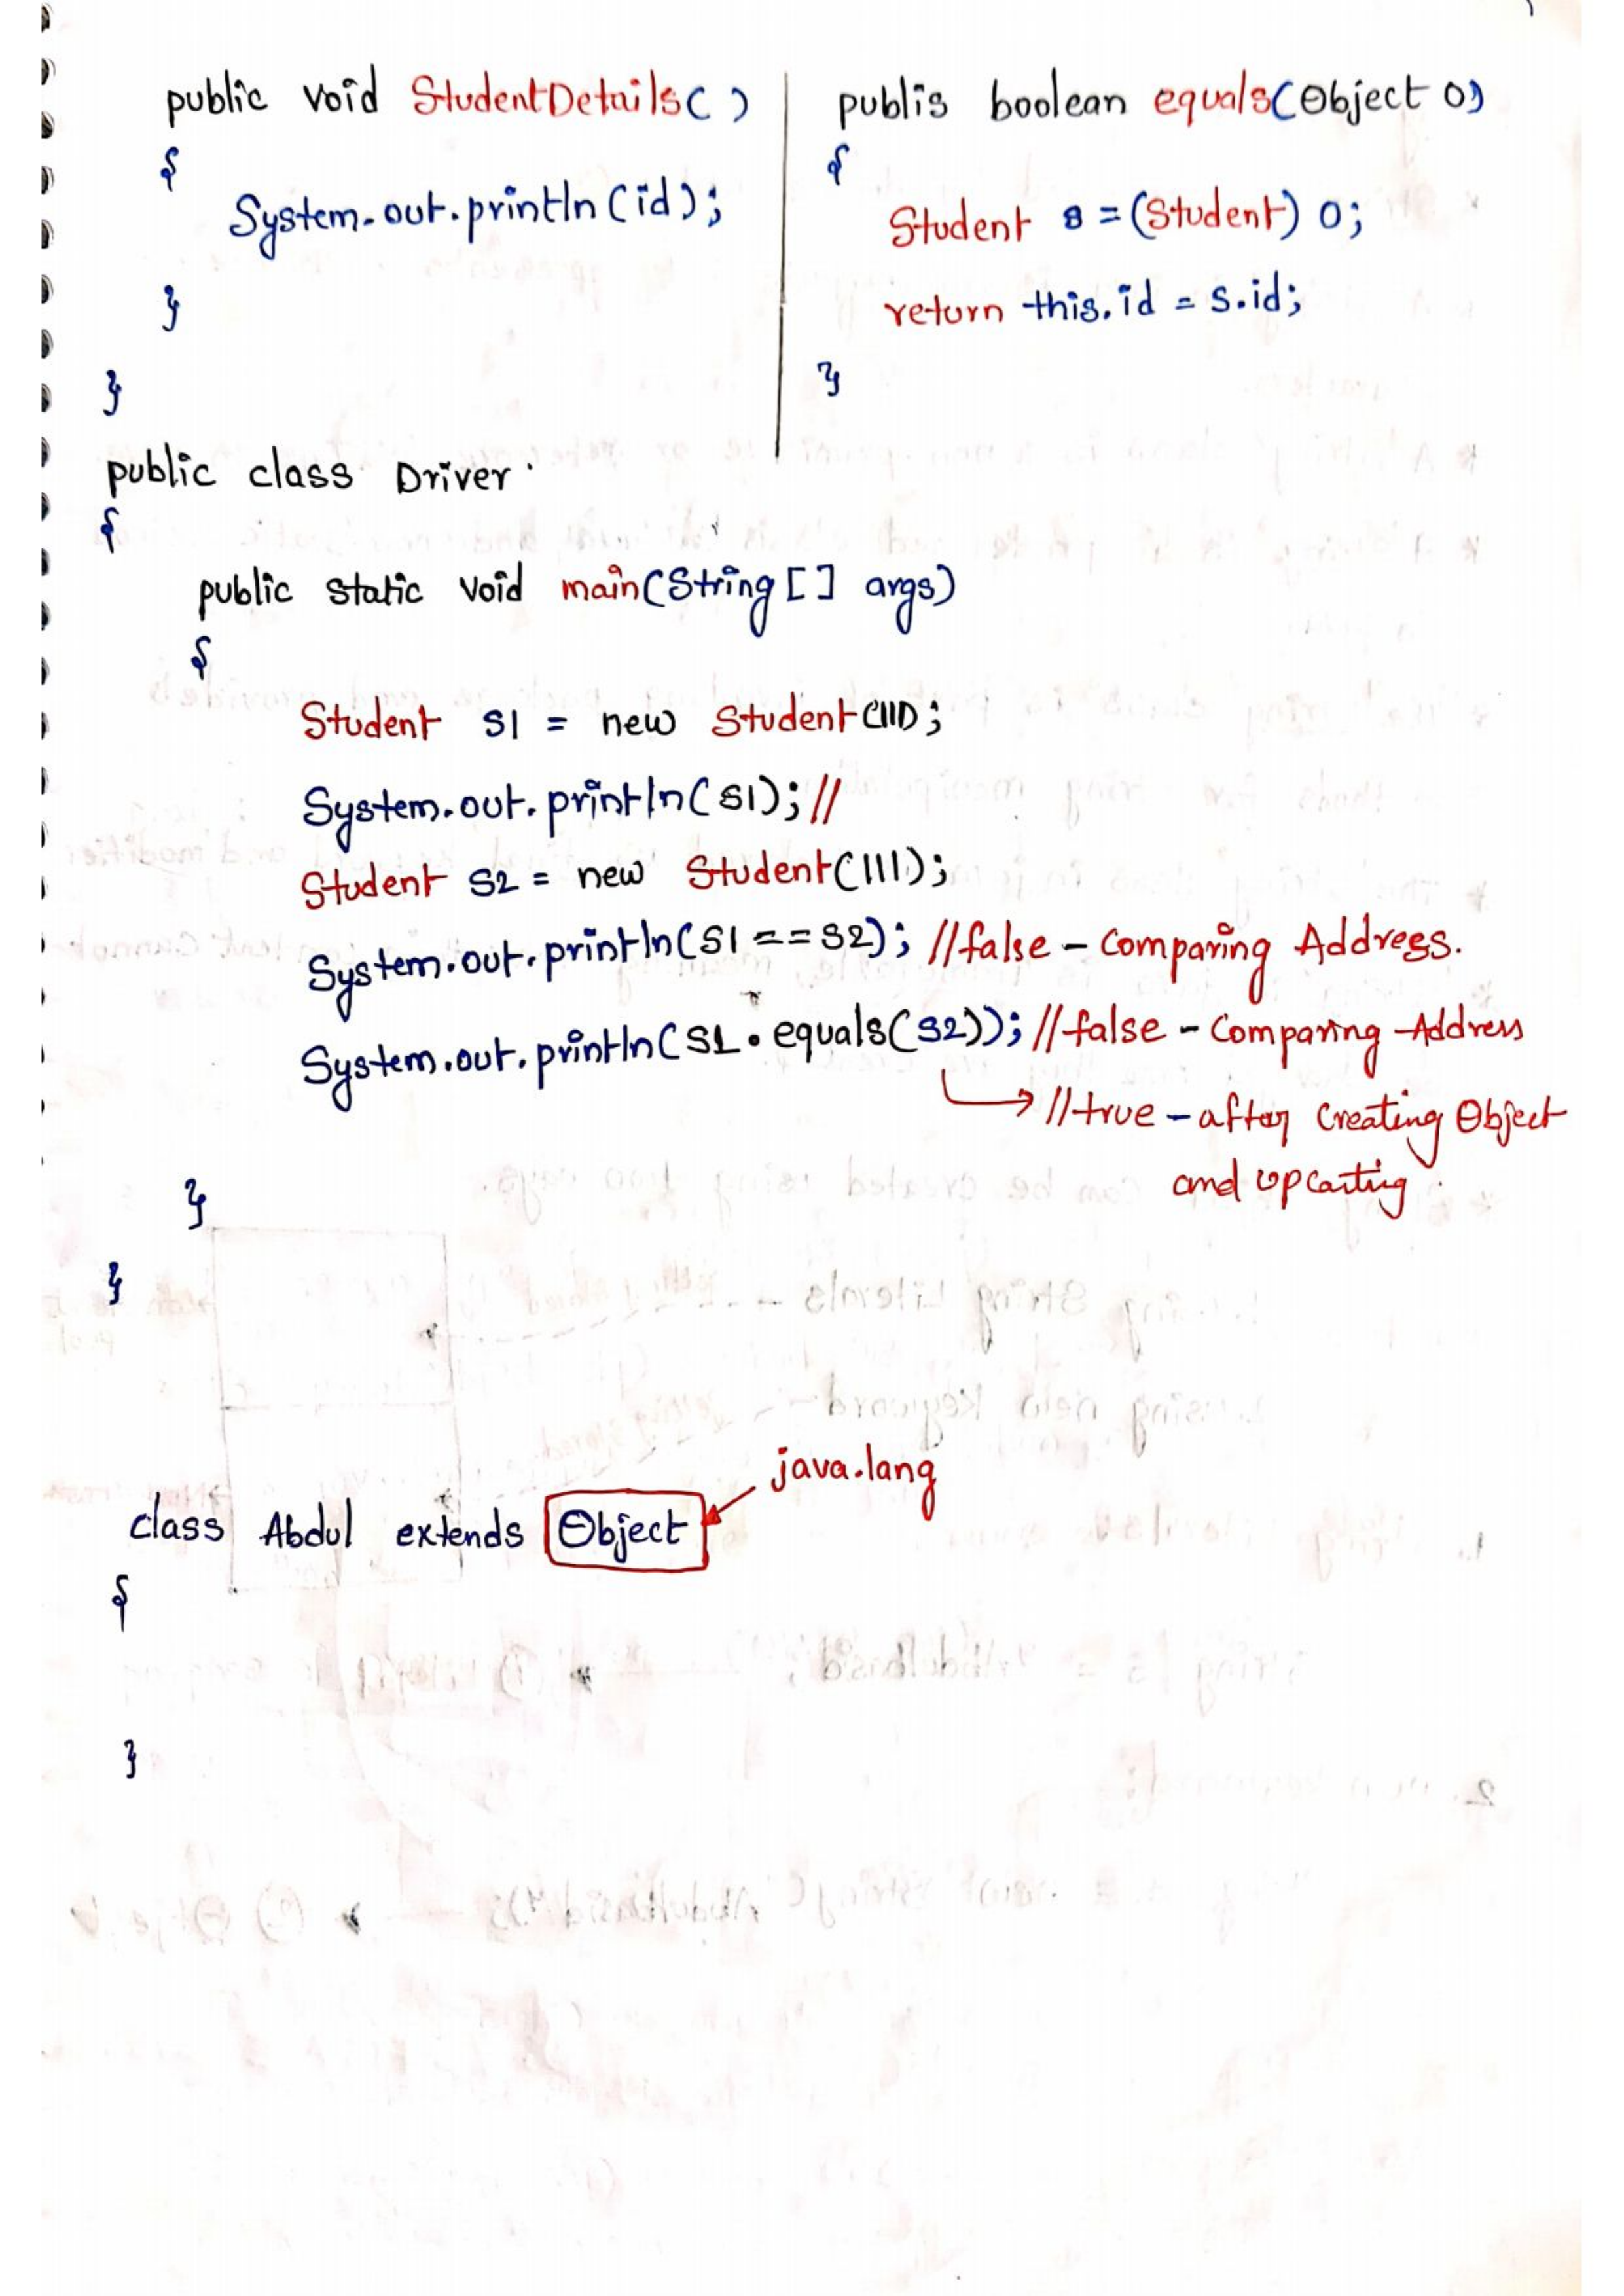 public void StudentDetails()
{
System.out.println(id);
}
}
publis boolean equals(Object O)
{
Student s = (Student) O;
return this.id = s.id;
}
public class Driver
{
public static void main(String [] args)
{
Student S1 = new Student(111);
System.out.println(S1); //
Student S2 = new Student(111);
System.out.println(S1 == S2); //false - Comparing Address.
System.out.println(S1.equals(S2)); //false - Comparing Address
//true - after Creating Object
and upcasting
}
}
java.lang
class Abdul extends Object
{
}